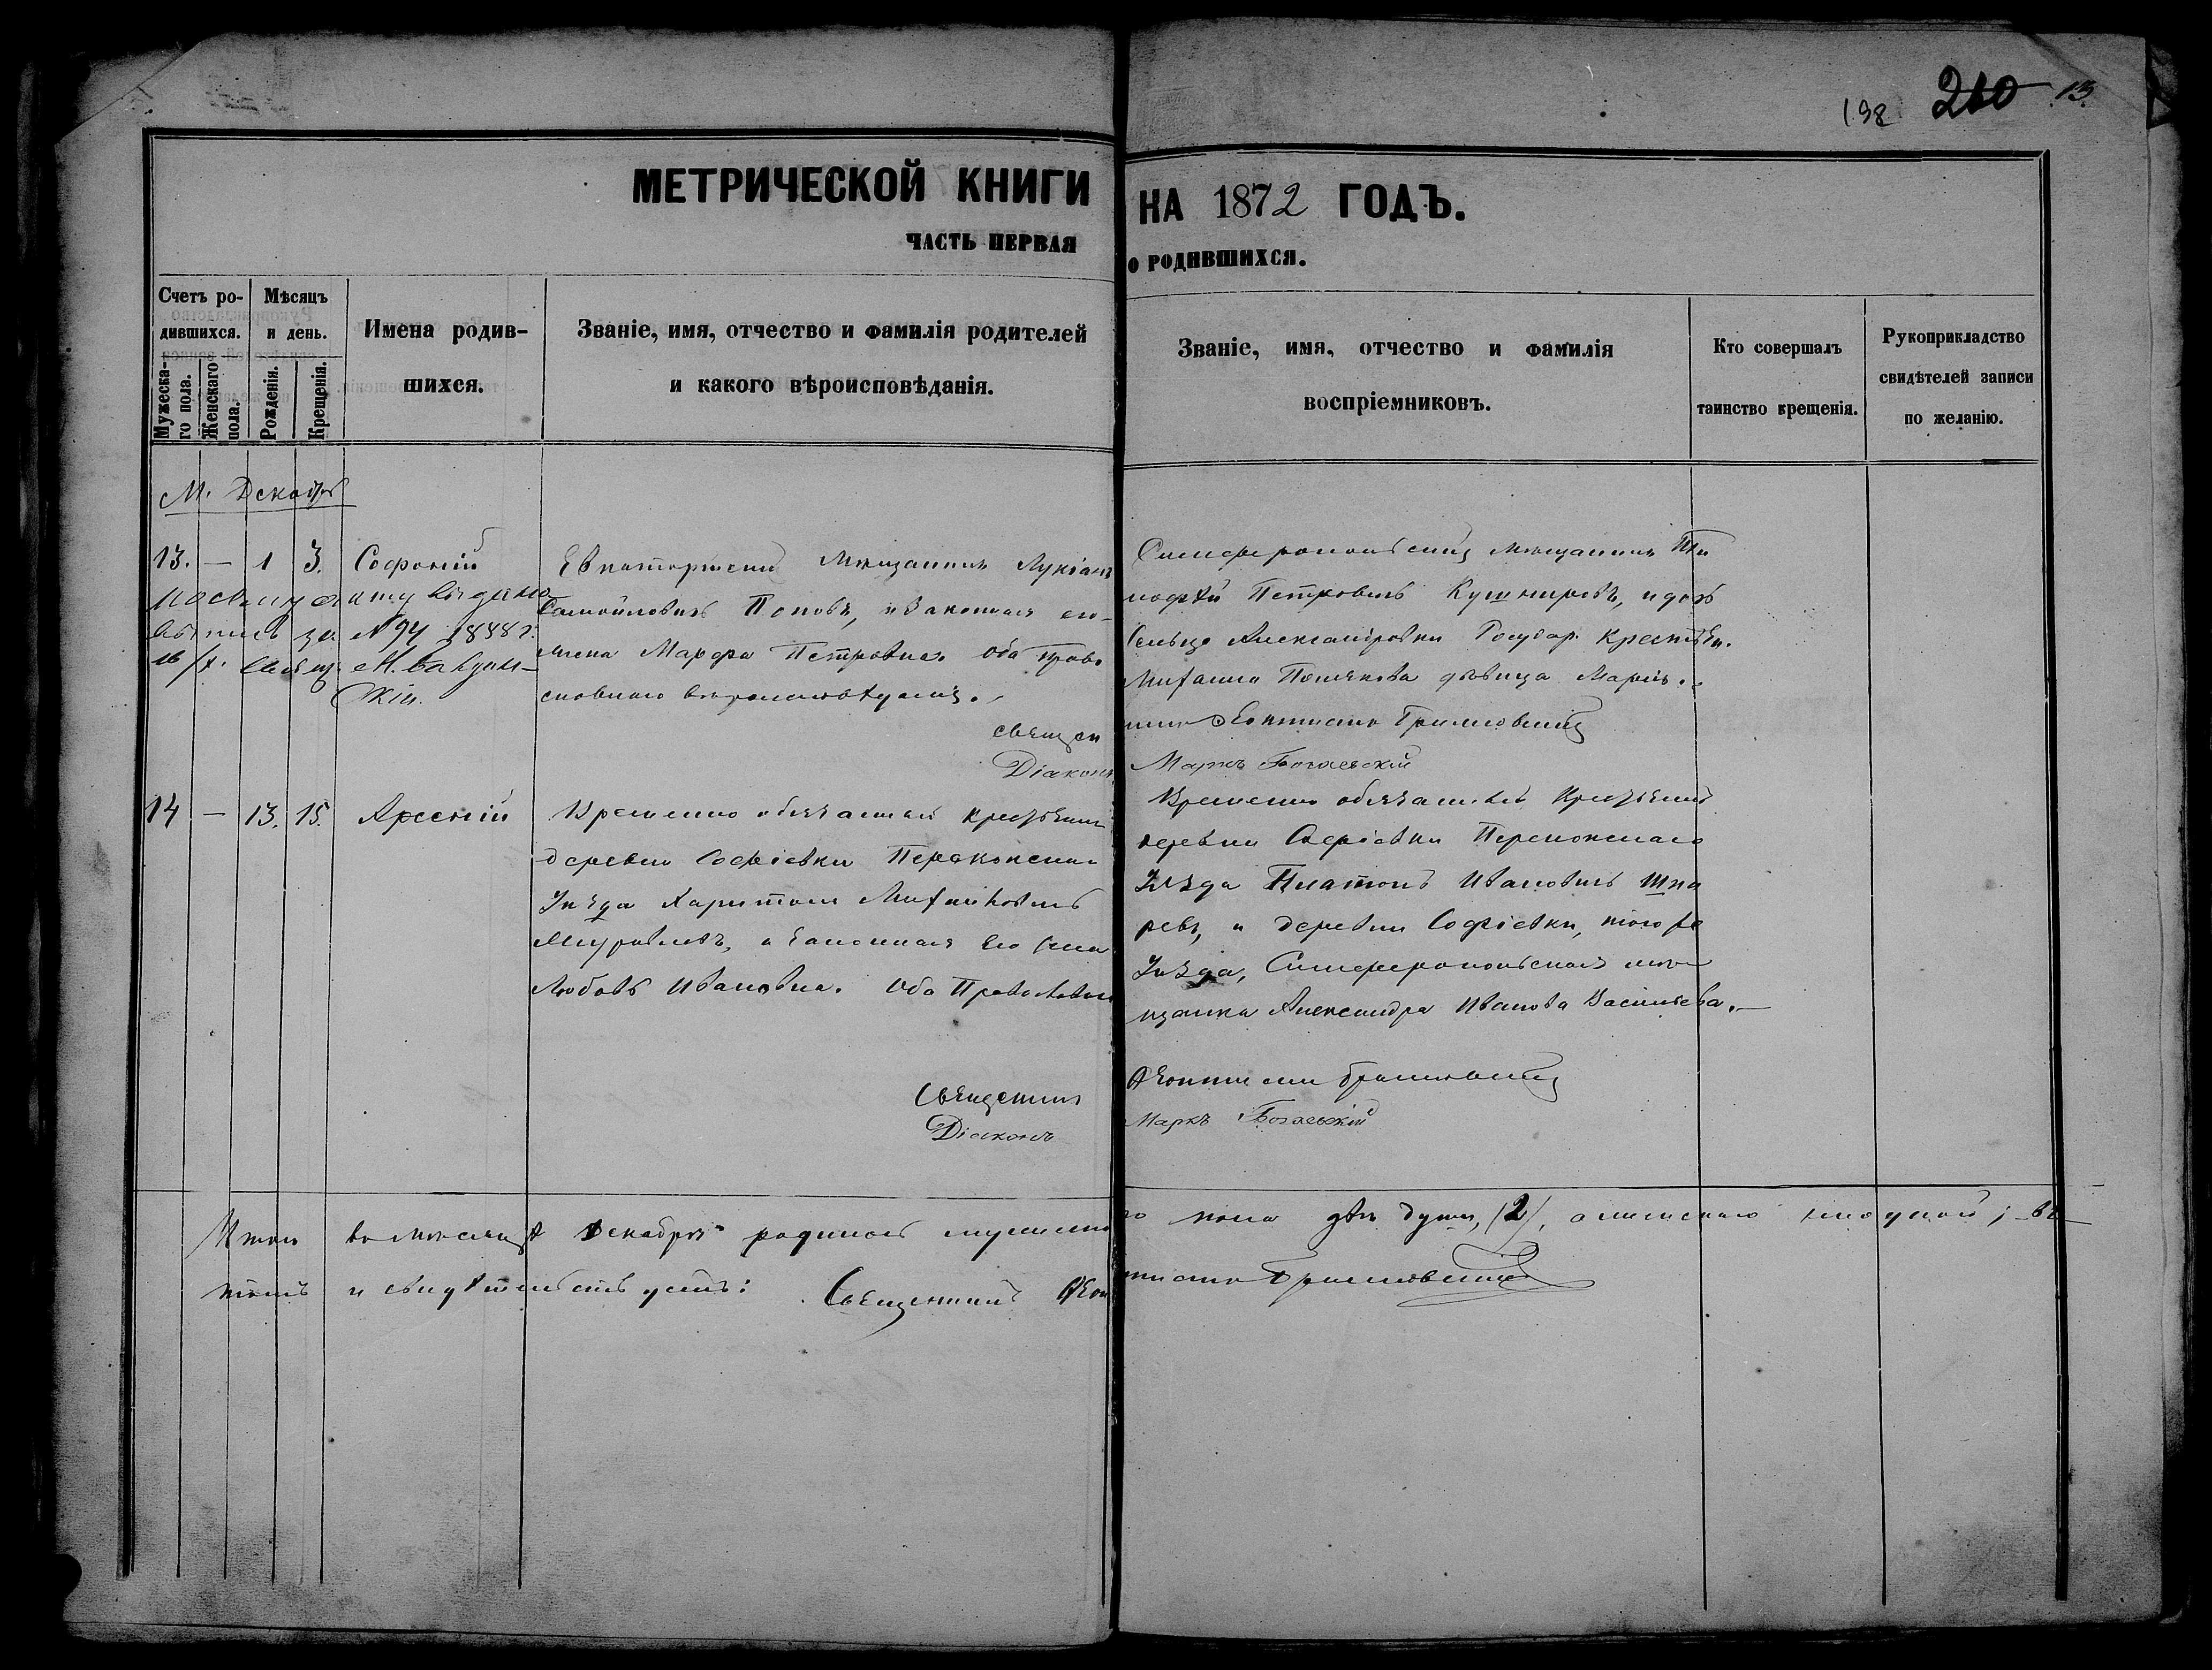 198 210 13.
МЕТРИЧЕСКОЙ КНИГИ НА 1872 ГОДЪ.
ЧАСТЬ ПЕРВАЯ О РОДИВШИХСЯ.
Счетъ родившихся.
Мужескаго пола.
Женскаго пола.
Мѣсяцъ и день.
Рожденія.
Крещенія.
Имена родившихся.
Званіе, имя, отчество и фамилія родителей
и какого вѣроисповѣданія.
Званіе, имя, отчество и фамилія
воспріемниковъ.
Кто совершалъ
таинство крещенія.
Рукоприкладство
свидѣтелей записи
по желанію.
М. Декабрь
13. — 1 3. Софоній
выпись за № 94 1888 г.
Свящ.
Мѣщанинъ Лукіанъ
Самойловичъ Поповъ, и законная его
жена Марфа Петровна. Оба Право
славнаго вѣроисповѣданія.
Священ
Діаконъ
Симферопольскій мѣщанинъ Ти
мофѣй Петровичъ Кушнировъ, и дочь
Александровки Государ. Крестьян.
дѣвица Марія.
Маркъ Богаевскій
14 — 13. 15. Арсеній
Временно обязанный крестьянин
деревни Софіевки Перекопскаго
Уѣзда Харитонъ
Муравлевъ, и законная его жена
Любовь Ивановна. Оба Православн
Священникъ
Діаконъ
Временно обязанный Крестьянинъ
деревни Софіевки Перекопскаго
Уѣзда Платонъ Ивановичъ Шпа
ревъ, и деревни Софіевки, того же
Уѣзда, Симферопольская мѣ
щанка Александра Иванова Васильева.
Маркъ Богаевскій
Итого въ мѣсяцѣ Декабрѣ родилось мужскаго пола двѣ души, (2), а женскаго ни одной; въ
томъ и свидѣтельствуемъ: Священникъ